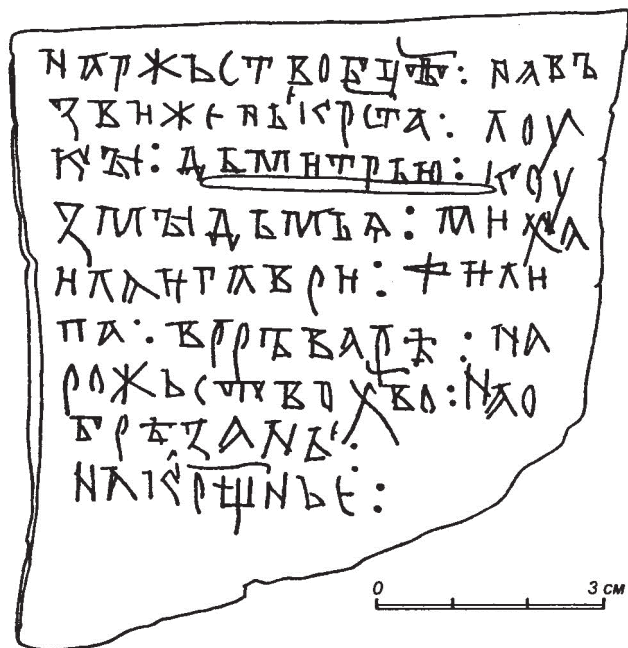 НАРЖЬСТВОБЦѢ: НАВЪ
ЗВИЖЕНЬКРСТА: ЛОУ
КЪІ: ДЬМИТРЬЮ: КОУ
ЗМЪІДЬМЬѦ: МИХА
ИЛАИГАВРИ: ФИЛИ
ПА: ВРРѢВАРѢ: НА
РОЖЬСТВОХВО: НАО
БРѢЗАНЬ:
НАКРЩНЬЕ:
0 3 см